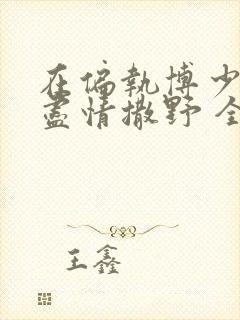 在偏執博少
盡情撒野 全
王鑫